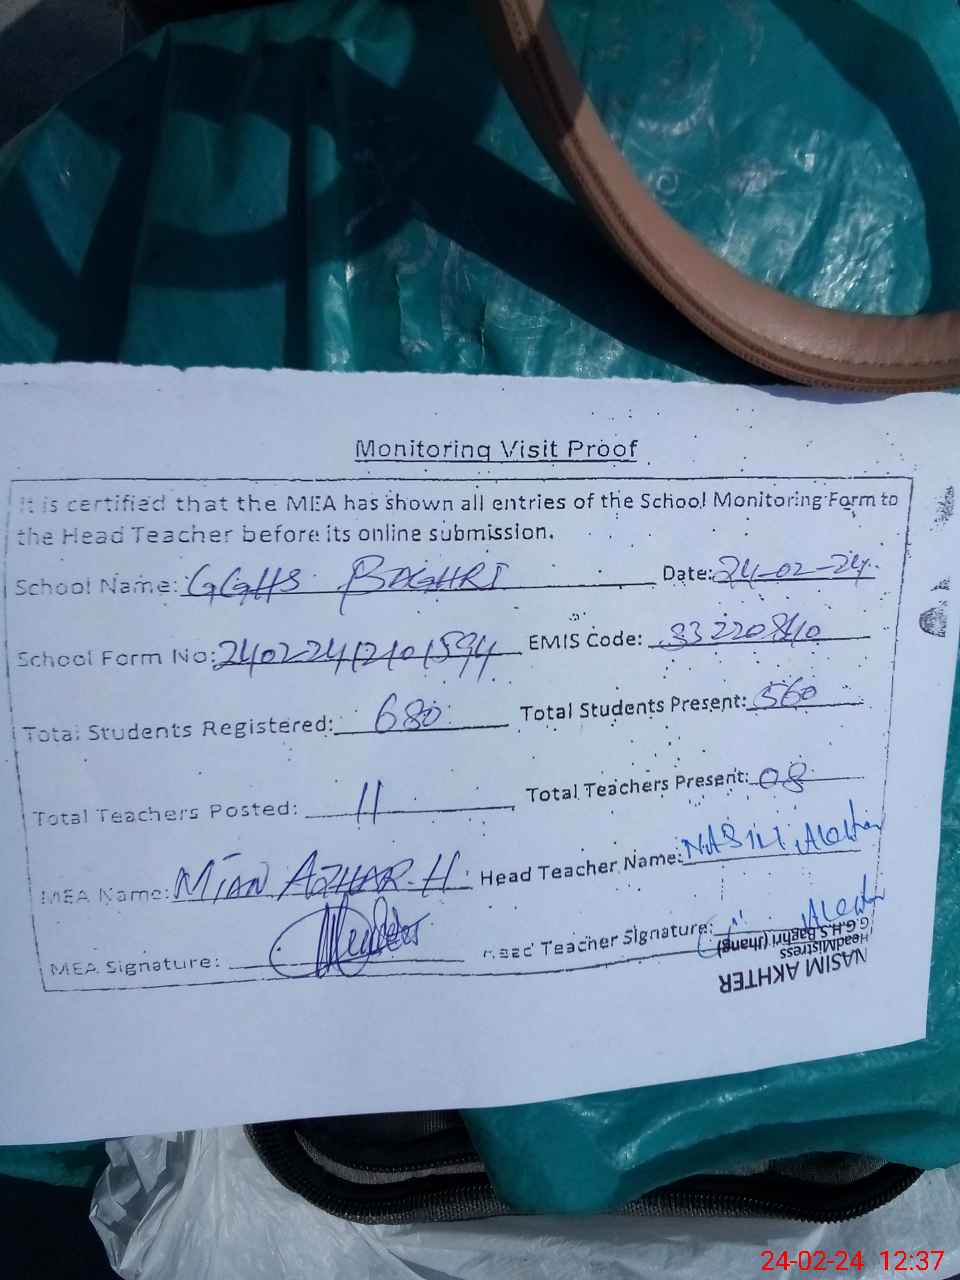 Monitoring Visit Proof
It is certified that the MEA has shown all entries of the School Monitoring Form to
the Head Teacher before its online submission.
School Name: GGHS BAGHRI Date: 24-02-24
School Form No: 2402-2412101594 EMIS Code: 33220840
Total Students Registered: 680 Total Students Present: 560
Total Teachers Posted: 11 Total Teachers Present: 08
MEA Name: MIAN AZHAR.H Head Teacher Name: NASIM Akhter
MEA Signature: Head Teacher Signature:
NASIM AKHTER
HeadMistress
G.G.H.S. Baghri (Jhang)
24-02-24 12:37